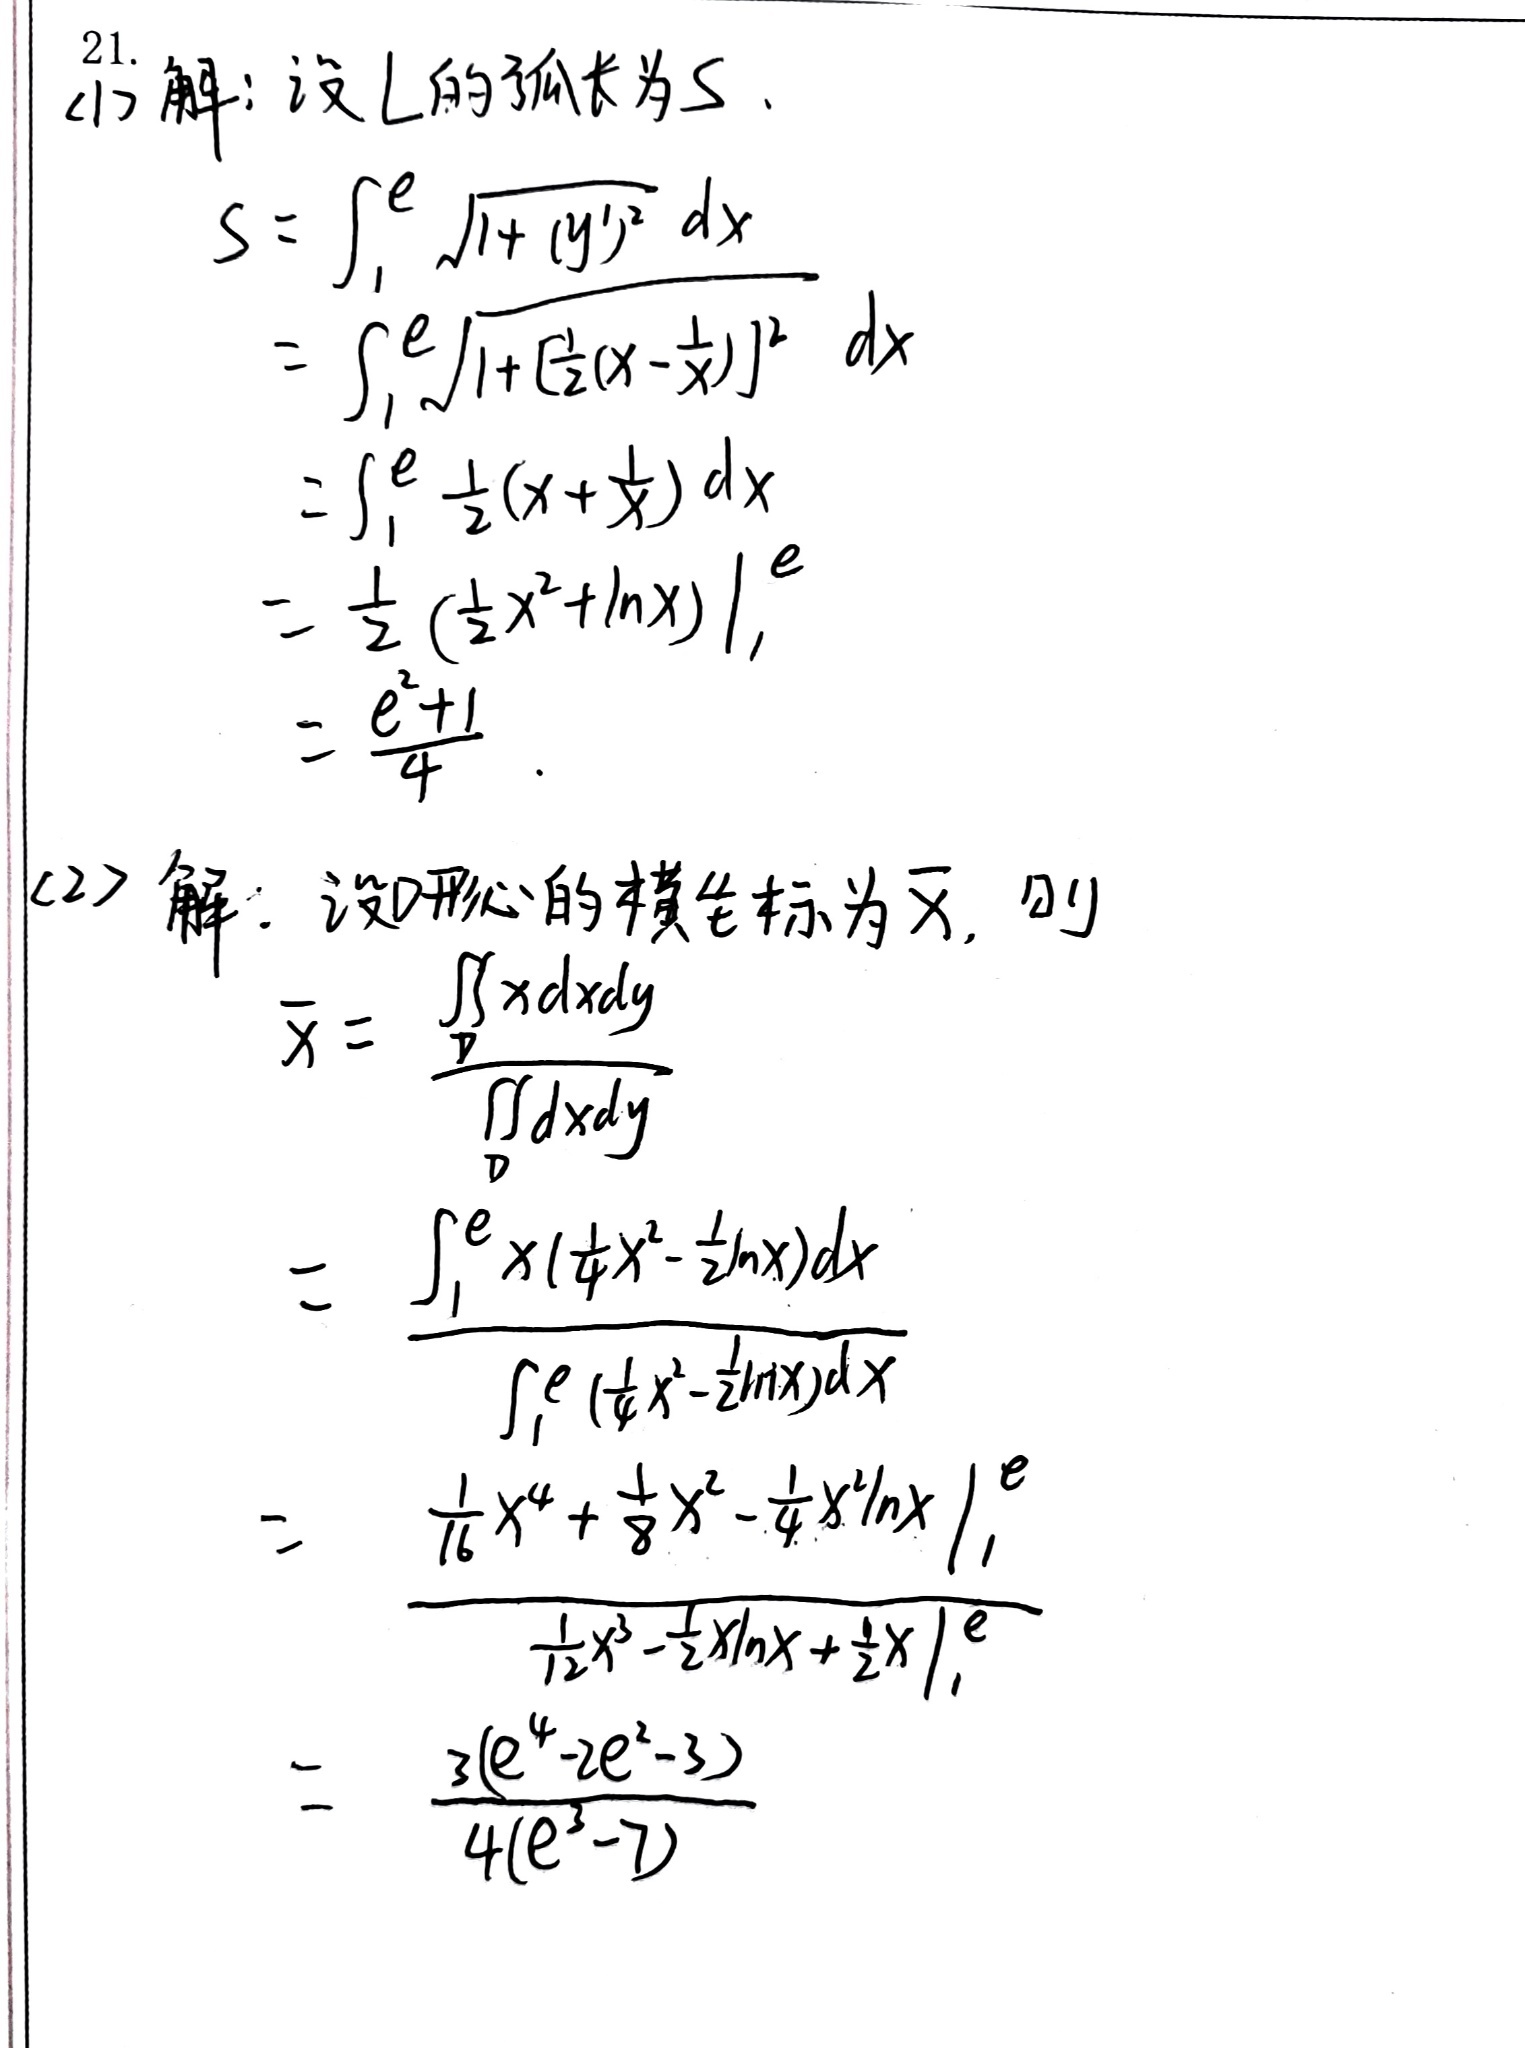 21.
(1) 解: 设L的弧长为S.
S = ∫₁^e √(1+(y')²) dx
= ∫₁^e √(1+[½(x-1/x)]²) dx
= ∫₁^e ½(x+1/x) dx
= ½(½x²+lnx)|₁^e
= (e²+1)/4.
(2) 解: 设D形心的横坐标为x̄, 则
x̄ = ∬_D xdxdy / ∬_D dxdy
= ∫₁^e x(¼x²-½lnx)dx / ∫₁^e (¼x²-½lnx)dx
= (1/16 x⁴ + 1/8 x² - ¼x²lnx |₁^e) / (1/12 x³ - ½xlnx + ½x |₁^e)
= 3(e⁴-2e²-3) / 4(e³-7)